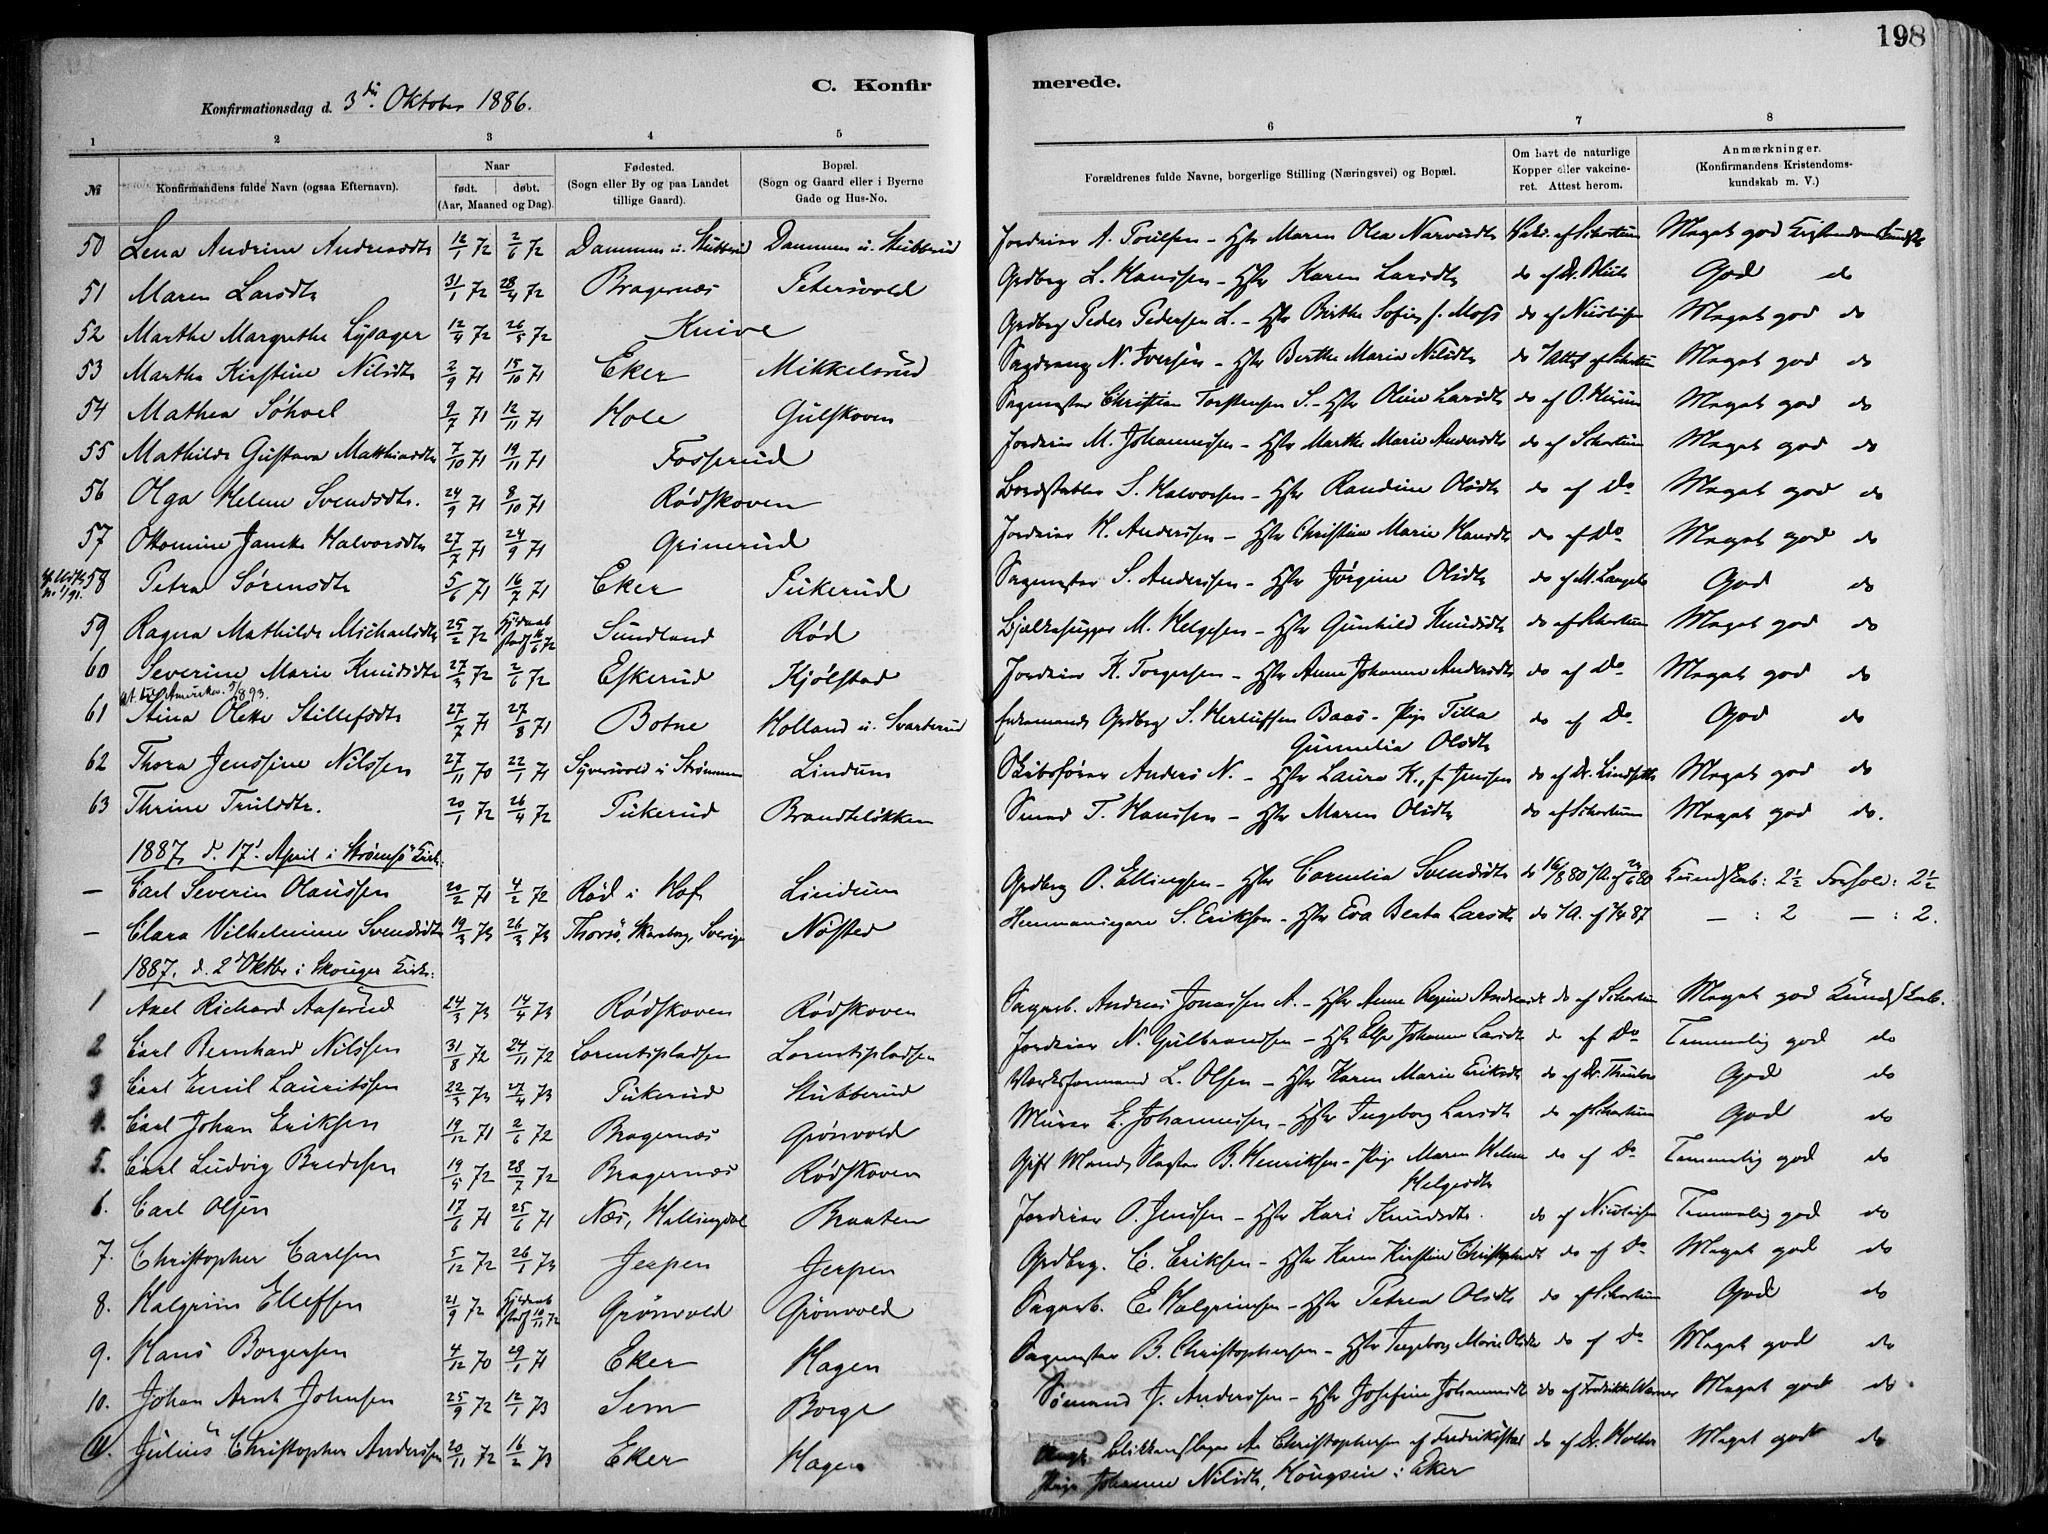 198
C. Konfirmerede.
Konfirmationsdag d. 3die Oktober 1886.
1 2 3 4 5 6 7 8
№ Konfirmandens fulde Navn (ogsaa Efternavn). Naar født. døbt. (Aar, Maaned og Dag). Fødested. (Sogn eller By og paa Landet tillige Gaard). Bopæl. (Sogn og Gaard eller i Byerne Gade og Hus-No. Forældrenes fulde Navne, borgerlige Stilling (Næringsvei) og Bopæl. Om havt de naturlige Kopper eller vakcineret. Attest herom. Anmærkninger. (Konfirmandens Kristendomskundskab m. V.)
50 Lena Andrine Andreasdtr 12/1 72 2/6 72 Dammen u. Stubberud Dammen u. Stubberud Jordeier A. Poulsen - Hstr Maren Olea Narvesdtr Vaks. af Schartum Meget god Kristendomskundsk.
51 Maren Larsdtr 31/1 72 28/4 72 Bragernæs Petersvold Grdbrg L. Hanssen - Hstr Karen Larsdtr do af Dr. God do
52 Marthe Margrethe Lysager 12/4 72 26/5 72 Knive Grdbrg Peder Pedersen L. - Hstr Birthe Sofie f. Moss do af Nicolaisen Meget god do
53 Marthe Kirstine Nilsdtr 2/9 71 15/10 71 Eker Mikkelsrud Sagdreng N. Iversen - Hstr Berthe Marie Nilsdtr do Attest af Schartum Meget god do
54 Mathea Søhoel 9/7 71 12/11 71 Hole Gulskoven Sagmester Christian Torstensen S. - Hstr Oline Larsdtr do af O. Meget god do
55 Mathilde Gustava Matthiasdtr 7/10 71 19/11 71 Fosserud Jordeier M. Johannessen - Hstr Marthe Marie Andersdtr do af Schartum Meget god do
56 Olga Helene Svendsdtr. 24/9 71 8/10 71 Rødskoven Bordstabler S. Halvorsen - Hstr Randine Olsdtr do af Do Meget god do
57 Ottomine Janette Halvorsdtr 27/7 71 24/9 71 Grinerud Jordeier H. Anderssen - Hstr Christine Marie Hansdtr do af Do Meget god do
58 Petra Sørensdtr 5/6 71 16/7 71 Eker Tukerud Sagmester S. Anderssen - Hstr Jørgine Olsdtr do af M. Lange God do
59 Ragna Mathilde Michaelsdtr 25/2 72 Hjdaab stadf 16/6 72 Sundland Rød Bjelkehugger M. Helgesen - Hstr Gunhild Knudsdtr do af Schartum Meget god do
60 Severine Marie Knudsdtr 27/3 72 2/6 72 Eskerud Kjølstad Jordeier K. Torgersen - Hstr Anne Johanne Andersdtr do af Do Meget god do
at. til Amerika 5/8 93.
61 Stina Oleke Stillefsdtr 27/7 71 27/8 71 Botne Holland u. Svarterud Enkemands Grdbrg S. Herlufsen Baas - Pige Tilla Gunnelia Olsdtr do af Do God do
62 Thora Jenssine Nilssen 27/11 70 22/1 71 Syversvold i Strømmen Lindum Skibsfører Anders N. - Hstr Laura K., f. Jenssen do af Dr. Meget god do
63 Thrine Trulsdtr. 20/1 72 26/4 72 Tukerud Brandtsløkken Smed T. Hanssen - Hstr Maren Olsdtr do af Schartum Meget god do.
1887, d. 17de April i Strømsø Kirke:
- Carl Severin Olaussen 20/2 71 4/2 72 Rød i Hof Lindum Grdbrg O. Ellingsen - Hstr Cornelia Svendsdtr do 16/8 80 /A. af 24/6 80 Kundskab: 2½ Forhold: 2½
- Clara Vilhelmine Svendsdtr 19/3 73 26/3 73 Thorsø, Skaraborg, Sverige Nøsted Hemmansegare S. Eriksson - Hstr Eva Beata Larsdtr do - : 2 - : 2.
1887. d. 2den Oktbr i Skouger Kirke:
1 Axel Richard Aaserud 24/3 73 14/4 73 Rødskoven Rødskoven Sagarb. Andreas Jonassen A. - Hstr Anne Regine do af Schartum Meget god Kundskab.
2 Carl Bernhard Nilssen 31/8 72 24/11 72 Lorentspladsen Lorentspladsen Jordeier N. Gulbrandsen - Hstr Else Johanne Larsdtr do af Do Temmelig god do
3 Carl Emil Lauritssen 22/3 73 27/4 73 Tukerud Stubberud Værksformand L. Olsen - Hstr Karen Marie Eriksdtr do af Dr. God do
4. Carl Johan Eriksen 19/12 71 2/6 72 Bragernæs Grønvold Murer E. Johannessen - Hstr Ingeborg Larsdtr do af Schartum God do
5. Carl Ludvig Bredesen 19/4 72 28/7 72 Bragernæs Rødskoven Gift Mand, Slagter B. Henriksen - Pige Maren Helene Helgesdtr do af Do Temmelig god do
6. Carl Olsen 17/6 71 25/6 71 Næs, Hallingdal Braaten Jordeier O. Jenssen - Hstr Kari Knudsdtr. do af Nicolaisen Temmelig god do
7. Christopher Carlsen 5/12 72 26/1 73 Jerpen Jerpen Grdbrg. C. Eriksen - Hstr Karen Kirstine Christophersdt do af Do Meget god do
8. Halgrim Ellefsen 21/9 72 Hjdaab stadf 10/11 72 Grønvold Grønvold Sagarb. E. Halgrimsen - Hstr Petrea Olsdtr do af Schartum God do
9. Hans Borgersen 4/12 70 29/1 71 Eker Hagen Sagmester B. Christophersen - Hstr Ingeborg Marie Olsdtr do af Do Meget god do
10. Johan Arnt Johnsen 25/9 72 12/1 73 Sem Borge Sømand J. Anderssen - Hstr Josefine Johannesdt do af Fredrikke Werner Meget godt do
11. Julius Christopher Anderssen 20/11 72 16/2 73 Eker Hagen Blikkenslager An Christophersen af Fredrikstad Pige Johanne Nilsdtr, Hougsun i Eker do af Dr. Holter Meget godt do